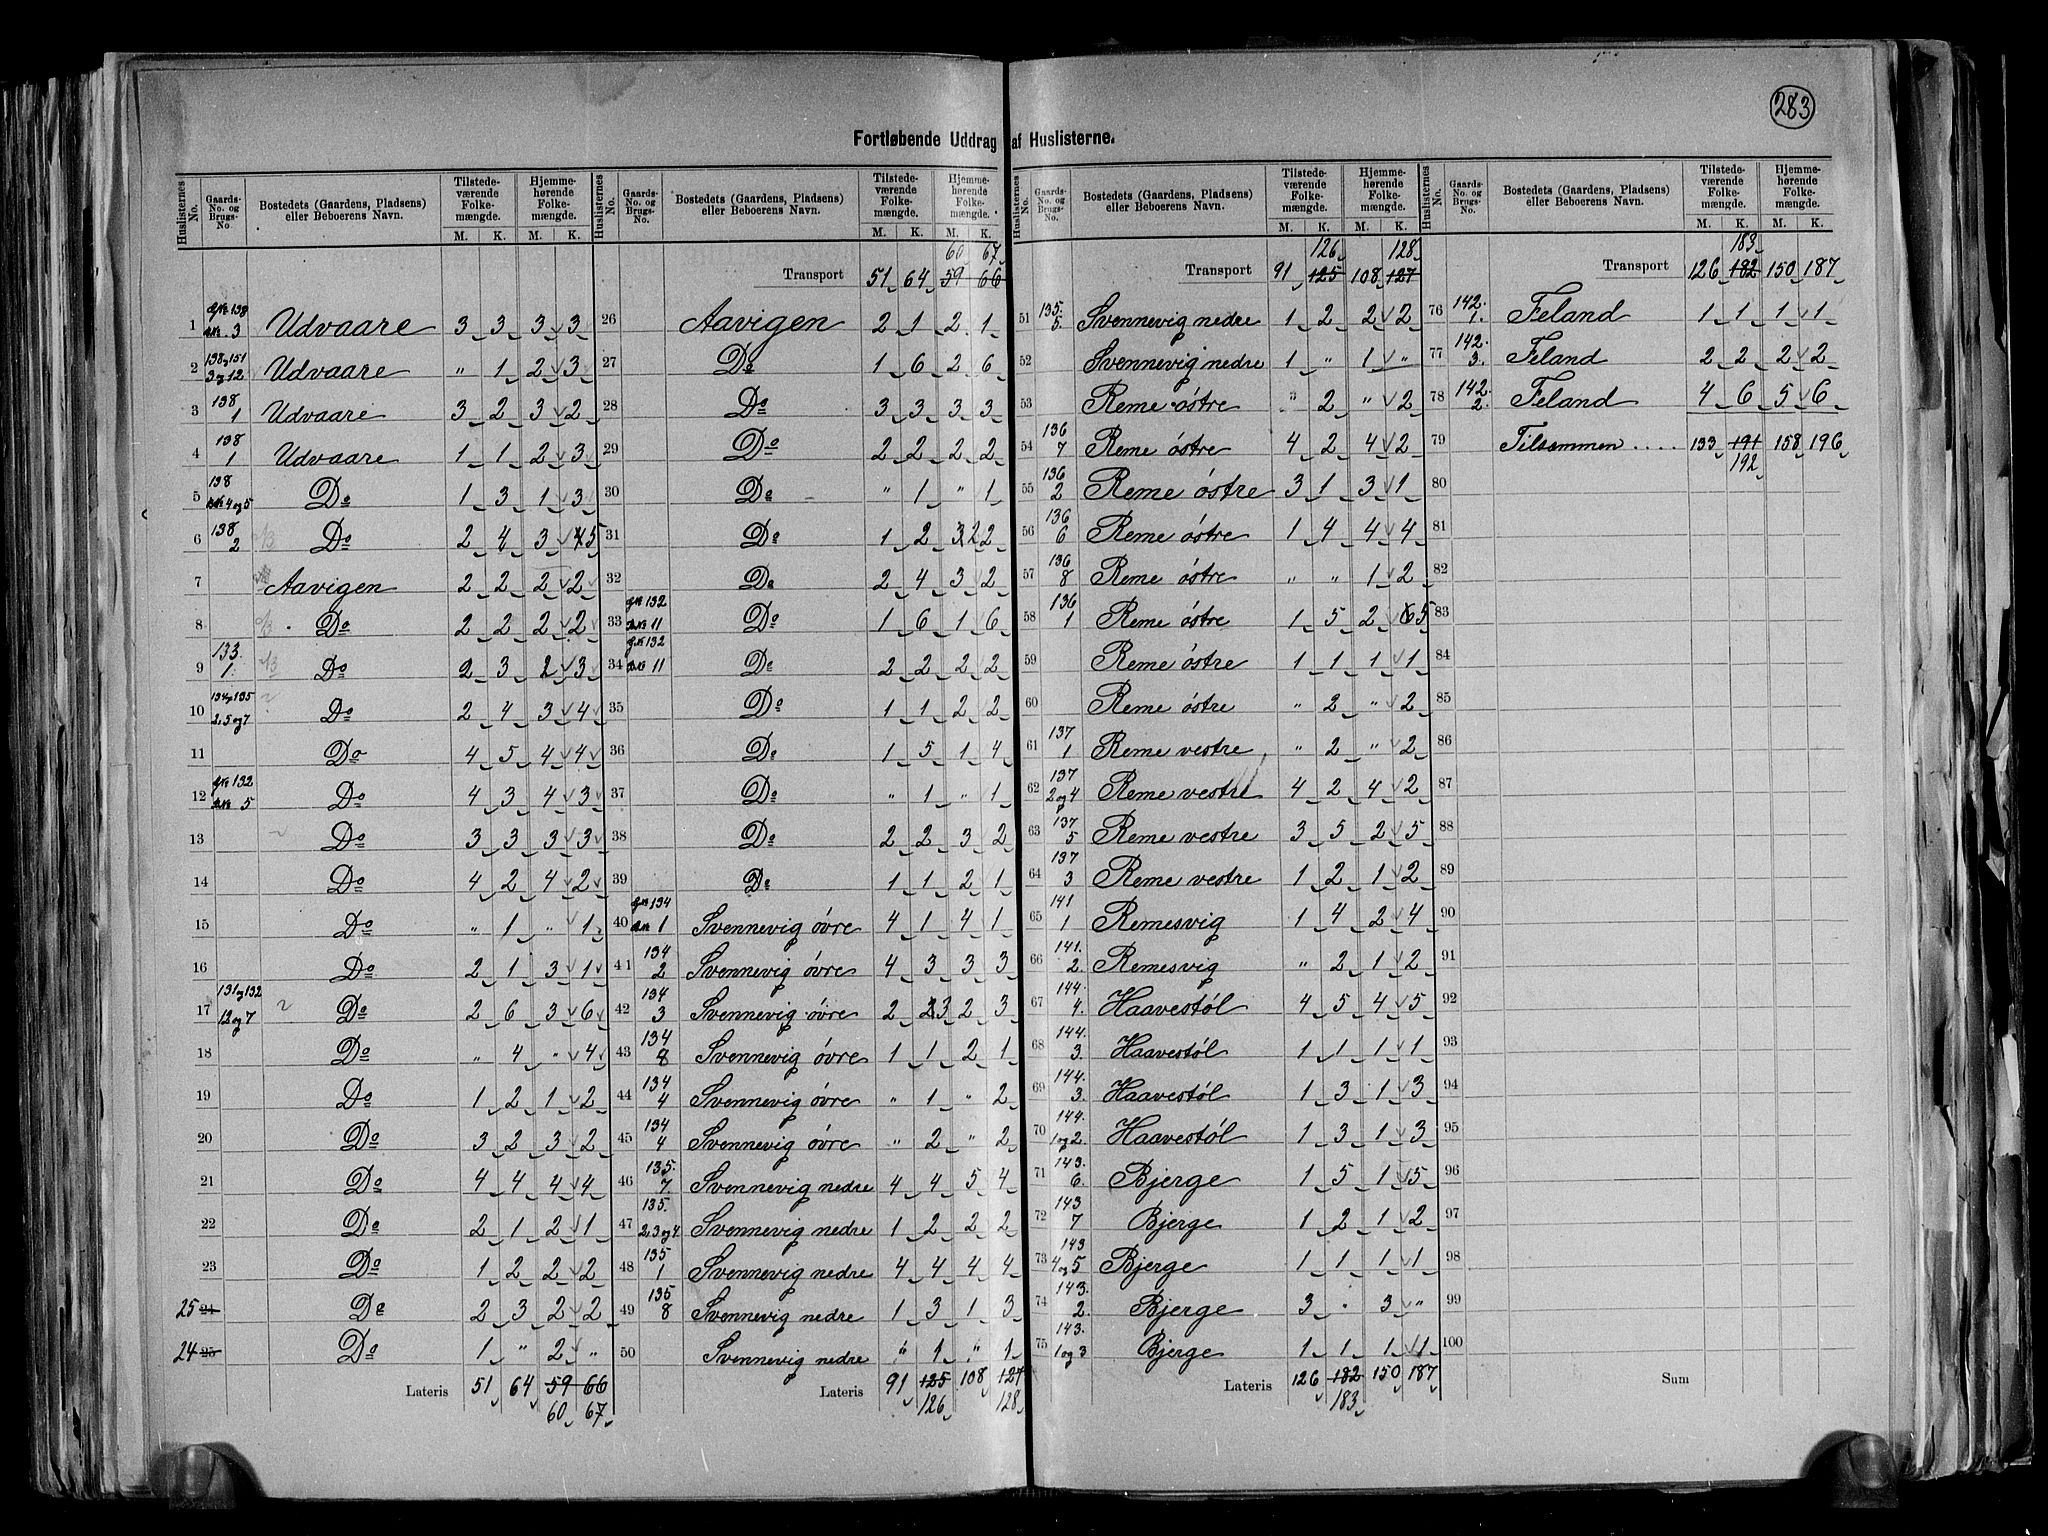 283
Fortløbende Uddrag af Huslisterne.
Huslisternes No. | Gaards-No. og Brugs-No. | Bostedets (Gaardens, Pladsens) eller Beboerens Navn. | Tilstedeværende Folkemængde. M. K. | Hjemmehørende Folkemængde. M. K.
1 | G№ 138 B№ 3 | Udvaare | 3 | 3 | 3 | 3
2 | 138 og 151 3 og 12 | Udvaare | " | 1 | 2 | 3
3 | 138 1 | Udvaare | 3 | 2 | 3 | 2
4 | 138 1 | Udvaare | 1 | 1 | 2 | 3
5 | 138 B№ 4 og 5 | Do | 1 | 3 | 1 | 3
6 | 138 2 | Do | 2 | 4 | 3 | 4 5
7 | Aavigen | 2 | 2 | 2 | 2
8 | Do | 2 | 2 | 2 | 2
9 | 133. 1. | Do | 2 | 3 | 2 | 3
10 | 134 og 135 2, 5 og 7 | Do | 2 | 4 | 3 | 4
11 | Do | 4 | 5 | 4 | 4
12 | G№ 132 B№ 5 | Do | 4 | 3 | 4 | 3
13 | Do | 3 | 3 | 3 | 3
14 | Do | 4 | 2 | 4 | 2
15 | Do | " | 1 | " | 1
16 | Do | 2 | 1 | 3 | 1
17 | 131 og 132 12 og 7 | Do | 2 | 6 | 3 | 6
18 | Do | " | 4 | " | 4
19 | Do | 1 | 2 | 1 | 2
20 | Do | 3 | 2 | 3 | 2
21 | Do | 4 | 4 | 4 | 4
22 | Do | 2 | 1 | 2 | 1
23 | Do | 1 | 2 | 2 | 2
25 24 | Do | 2 | 3 | 2 | 2
24 25 | Do | 1 | " | 2 | "
Lateris | 51 | 64 | 59 | 66
60 67
Huslisternes No. | Gaards-No. og Brugs-No. | Bostedets (Gaardens, Pladsens) eller Beboerens Navn. | Tilstedeværende Folkemængde. M. K. | Hjemmehørende Folkemængde. M. K.
60 67
Transport | 51 | 64 | 59 | 66
26 | Aavigen | 2 | 1 | 2 | 1
27 | Do | 1 | 6 | 2 | 6
28 | Do | 3 | 3 | 3 | 3
29 | Do | 2 | 2 | 2 | 2
30 | Do | " | 1 | " | 1
31 | Do | 1 | 2 | 3 2 | 2
32 | Do | 2 | 4 | 3 | 2
33 | G№ 132 B№ 11 | Do | 1 | 6 | 1 | 6
34 | G№ 132 B№ 11 | Do | 2 | 2 | 2 | 2
35 | Do | 1 | 1 | 2 | 2
36 | Do | 1 | 5 | 1 | 4
37 | Do | " | 1 | " | 1
38 | Do | 2 | 2 | 3 | 2
39 | Do | 1 | 1 | 2 | 1
40 | G№ 134 B№ 1 | Svennevig övre | 4 | 1 | 4 | 1
41 | 134 2 | Svennevig övre | 4 | 3 | 3 | 3
42 | 134 3 | Svennevig övre | 2 | 2 3 | 2 | 3
43 | 134 8 | Svennevig övre | 1 | 1 | 2 | 1
44 | 134 4 | Svennevig övre | " | 1 | " | 2
45 | 134 4 | Svennevig övre | " | 2 | " | 2
46 | 135. 7. | Svennevig nedre | 4 | 4 | 5 | 4
47 | 135. 2, 3 og 4. | Svennevig nedre | 1 | 2 | 2 | 2
48 | 135 1 | Svennevig nedre | 4 | 4 | 4 | 4
49 | 135 8 | Svennevig nedre | 1 | 3 | 1 | 3
50 | Svennevig nedre | " | 1 | " | 1
Lateris | 91 | 125 | 108 | 127
126 128
Huslisternes No. | Gaards-No. og Brugs-No. | Bostedets (Gaardens, Pladsens) eller Beboerens Navn. | Tilstedeværende Folkemængde. M. K. | Hjemmehørende Folkemængde. M. K.
126 128
Transport | 91 | 125 | 108 | 127
51 | 135. 5. | Svennevig nedre | 1 | 2 | 2 | 2
52 | Svennevig nedre | 1 | " | 1 | "
53 | Reme östre | " | 2 | " | 2
54 | 136 7 | Reme östre | 4 | 2 | 4 | 2
55 | 136 2 | Reme östre | 3 | 1 | 3 | 1
56 | 136 6 | Reme östre | 1 | 4 | 4 | 4
57 | 136 8 | Reme östre | " | " | 1 | 2
58 | 136 1 | Reme östre | 1 | 5 | 2 | 6 5
59 | Reme östre | 1 | 1 | 1 | 1
60 | Reme östre | " | 2 | " | 2
61 | 137 1 | Reme vestre | " | 2 | " | 2
62 | 137 2 og 4 | Reme vestre | 4 | 2 | 4 | 2
63 | 137 5 | Reme vestre | 3 | 5 | 2 | 5
64 | 137 3 | Reme vestre | 1 | 2 | 1 | 2
65 | 141 1 | Remesvig | 1 | 4 | 2 | 4
66 | 141. 2. | Remesvig | " | 2 | 1 | 2
67 | 144. 4. | Haavestöl | 4 | 5 | 4 | 5
68 | 144. 3. | Haavestöl | 1 | 1 | 1 | 1
69 | 144. 3. | Haavestöl | 1 | 3 | 1 | 3
70 | 144. 1 og 2. | Haavestöl | 1 | 3 | 1 | 3
71 | 143. 6. | Bjerge | 1 | 5 | 1 | 5
72 | 143 7 | Bjerge | 1 | 2 | 1 | 2
73 | 143 4 og 5 | Bjerge | 1 | 1 | 1 | 1
74 | 143. 2. | Bjerge | 3 | " | 3 | "
75 | 143. 1 og 3 | Bjerge | 1 | 1 | 1 | 1
Lateris | 126 | 182 | 150 | 187
183
Huslisternes No. | Gaards-No. og Brugs-No. | Bostedets (Gaardens, Pladsens) eller Beboerens Navn. | Tilstedeværende Folkemængde. M. K. | Hjemmehørende Folkemængde. M. K.
183
Transport | 126 | 182 | 150 | 187
76 | 142. 1. | Feland | 1 | 1 | 1 | 1
77 | 142. 3. | Feland | 2 | 2 | 2 | 2
78 | 142. 2. | Feland | 4 | 6 | 5 | 6
79 | Tilsammen .... | 133 | 191 | 158 | 196
192
80
81
82
83
84
85
86
87
88
89
90
91
92
93
94
95
96
97
98
99
100
Sum